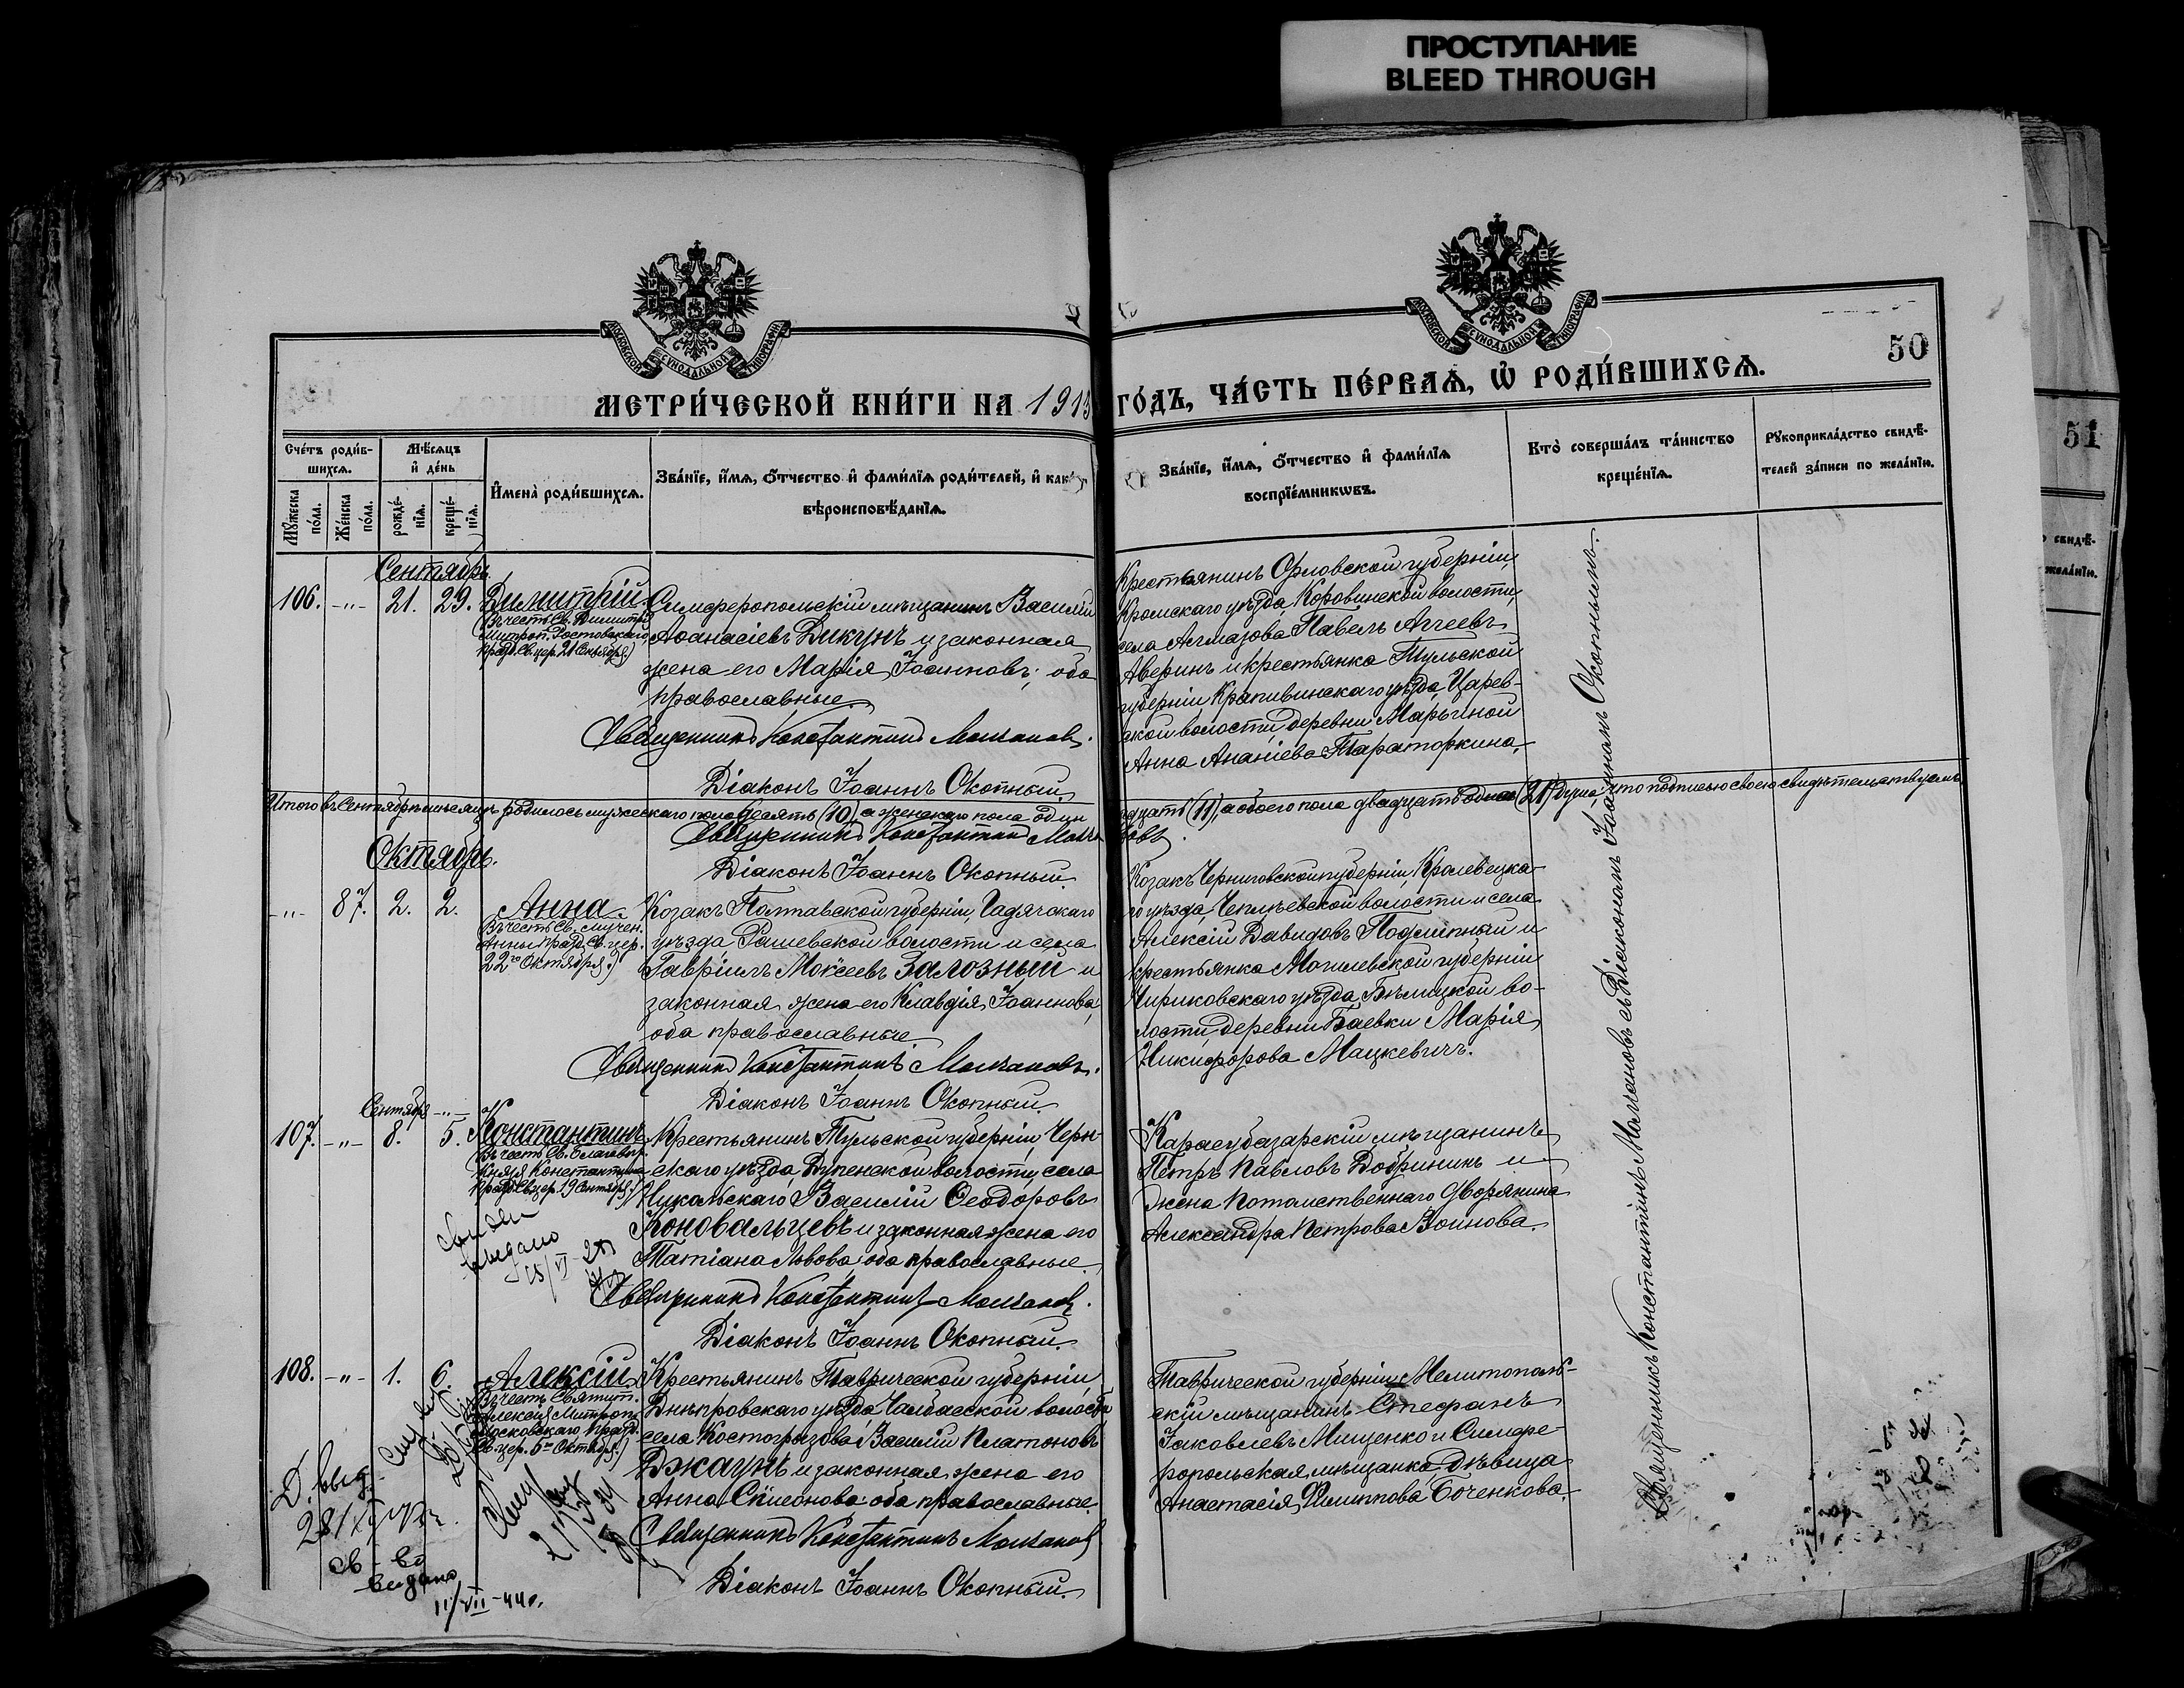 ПРОСТУПАНИЕ
BLEED THROUGH
МОСКОВСКОЙ СѴНОДАЛЬНОЙ ТИПОГРАФІИ
МОСКОВСКОЙ СѴНОДАЛЬНОЙ ТИПОГРАФІИ
50
МЕТРИ́ЧЕСКОЙ КНИ́ГИ НА 1913 ГО́ДЪ, ЧА́СТЬ ПЕ́РВАѦ, Ѿ РОДИ́ВШИХСѦ.
Сче́тъ роди́в-
шихсѧ.
Мѣ́сѧцъ
и҆ де́нь
Мꙋ́жеска
по́ла.
Же́нска
по́ла.
рожде́-
нїѧ.
креще́-
нїѧ.
И҆мена̀ роди́вшихсѧ.
Зва́нїе, и҆́мѧ, ѻ҆́тчество и҆ фами́лїѧ роди́телей, и҆ как
вѣроисповѣ́данїѧ.
Зва́нїе, и҆́мѧ, ѻ҆́тчество и҆ фами́лїѧ
воспрїе́мникѡвъ.
Кто̀ соверша́лъ та́инство
креще́нїѧ.
Рꙋкоприкла́дство свидѣ́-
телей за́писи по жела́нїю.
51
свидѣ́-
жела́нїю.
Сентябрь
106. -"- 21. 29. Димитрій
(Въ честь Св. Димитрія
Митроп. Ростовскаго
празд. Св. цер. 21 Сентября.)
Симферопольскій мѣщанинъ Василій
Аѳанасіевъ Дикунъ и законная
жена его Марія Іоаннова; оба
православные
Священникъ Константинъ Молчановъ.
Діаконъ Іоаннъ Окопный.
Крестьянинъ Орловской губерніи,
Кромскаго уѣзда, Коровинской волости,
села Павелъ Аггеевъ
Аверинъ и крестьянка Тульской
губерніи, Крапивинскаго уѣзда, Царев-
ской волости, деревни Марьиной
Анна Ананіева Тараторкина.
Итого въ Сентябрѣ мѣсяцѣ родилось мужескаго пола десять (10), а женскаго пола один
надцать (11), а обоего пола двадцать одна (21) душа, что подписью своею свидѣтельствуемъ
Священникъ Константинъ Молчановъ.
Діаконъ Іоаннъ Окопный.
Октябрь.
-"- 87. 2. 2. Анна.
(Въ честь Св. мучен.
Анны празд. Св. цер.
22го Октября.)
Козакъ Полтавской губерніи, Гадячскаго
уѣзда Рашевской волости и села
Гавріилъ Моѵсеевъ Залозный и
законная жена его Клавдія Іоаннова,
оба православные.
Священникъ Константинъ Молчановъ.
Діаконъ Іоаннъ Окопный.
Козакъ Черниговской губерніи, Кролевецка-
го уѣзда, Чеплѣевской волости и села
Алексій Давидовъ Подлипный и
крестьянка Могилевской губерніи
Чириковскаго уѣзда, Бѣлицкой во-
лости, деревни Баевки Марія
Никифорова Мацкевичъ.
Сентября -"-
107. -"- 8. 5. Константинъ
(Въ честь Св. благовѣр.
Князя Константина
празд. Св. цер. 19 Сентября.)
Крестьянинъ Тульской губерніи, Черн-
скаго уѣзда, Дупенской волости, села
Василій Ѳеодоровъ
Коновальцевъ и законная жена его
Татіана Львова, оба православные.
Священникъ Константинъ Молчановъ.
Діаконъ Іоаннъ Окопный.
Карасубазарскій мѣщанинъ
Петръ Павловъ Добринин и
жена потомственнаго дворянина
Александра Петрова Воинова.
выдано
15/VI
108. -"- 1. 6. Алексій
(Въ честь Святит.
Алексія Митроп.
Московскаго празд.
Св. цер. 5го Октября.)
Крестьянинъ Таврической губерніи,
Днѣпровскаго уѣзда, Чалбасской волости
села Костогрызова Василій Платоновъ
Джаунъ и законная жена его
Анна Сѵмеонова оба православные.
Священникъ Константинъ Молчановъ
Діаконъ Іоаннъ Окопный.
Таврической губерніи Мелитополь-
скій мѣщанинъ Стефанъ
Іаковлевъ Мищенко и Симфе
ропольская мѣщанка, дѣвица
Анастасія Филиппова Боченкова.
Д. выд.
св-во
выдано
11/VII-44г.
Священникъ Константинъ Молчановъ съ Діакономъ Іоанномъ Окопнымъ.